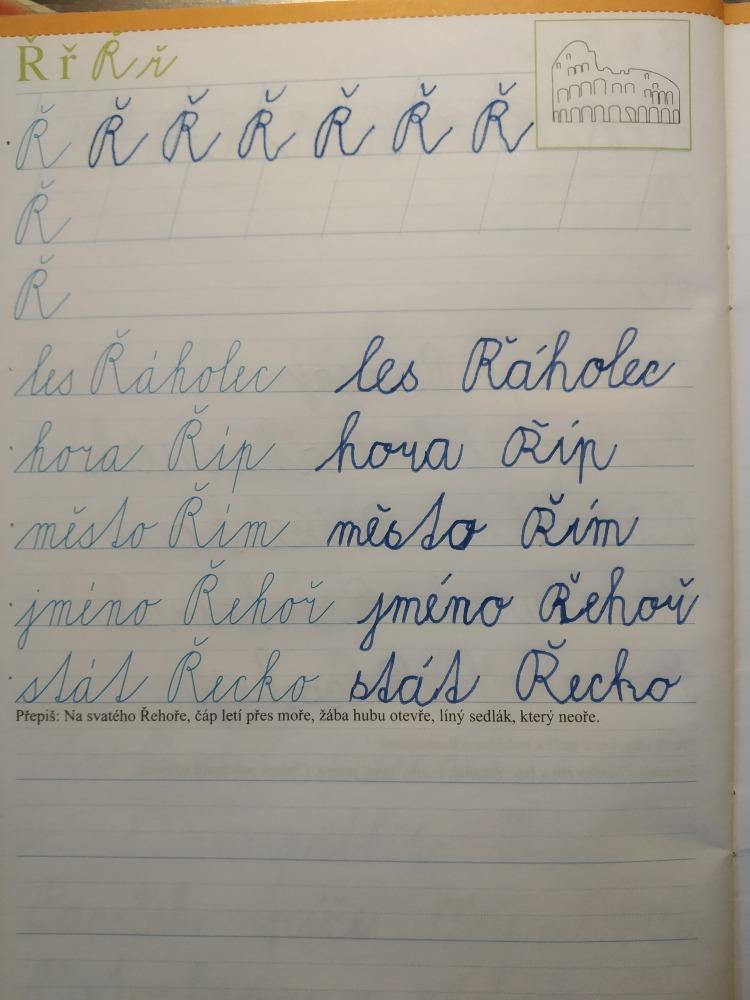 Ř ř Ř ř
Ř Ř Ř Ř Ř Ř Ř
Ř
Ř
les Řáholec les Řáholec
hora Říp hora Říp
město Řím město Řím
jméno Řehoř jméno Řehoř
stát Řecko stát Řecko
Přepiš: Na svatého Řehoře, čáp letí přes moře, žába hubu otevře, líný sedlák, který neoře.